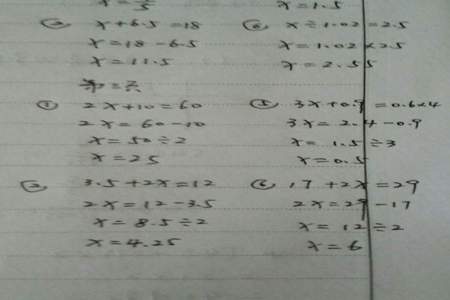 x=1.5
② x+6.5=18
x=18-6.5
x=11.5
x÷1.02=2.5
x=1.02×2.5
x=2.55
① 2x+10=60
2x=60-10
x=50÷2
x=25
⑤ 3x+0.9=0.6×4
3x=2.4-0.9
x=1.5÷3
x=0.5
② 3.5+2x=12
2x=12-3.5
x=8.5÷2
x=4.25
⑥ 17+2x=29
2x=29-17
x=12÷2
x=6